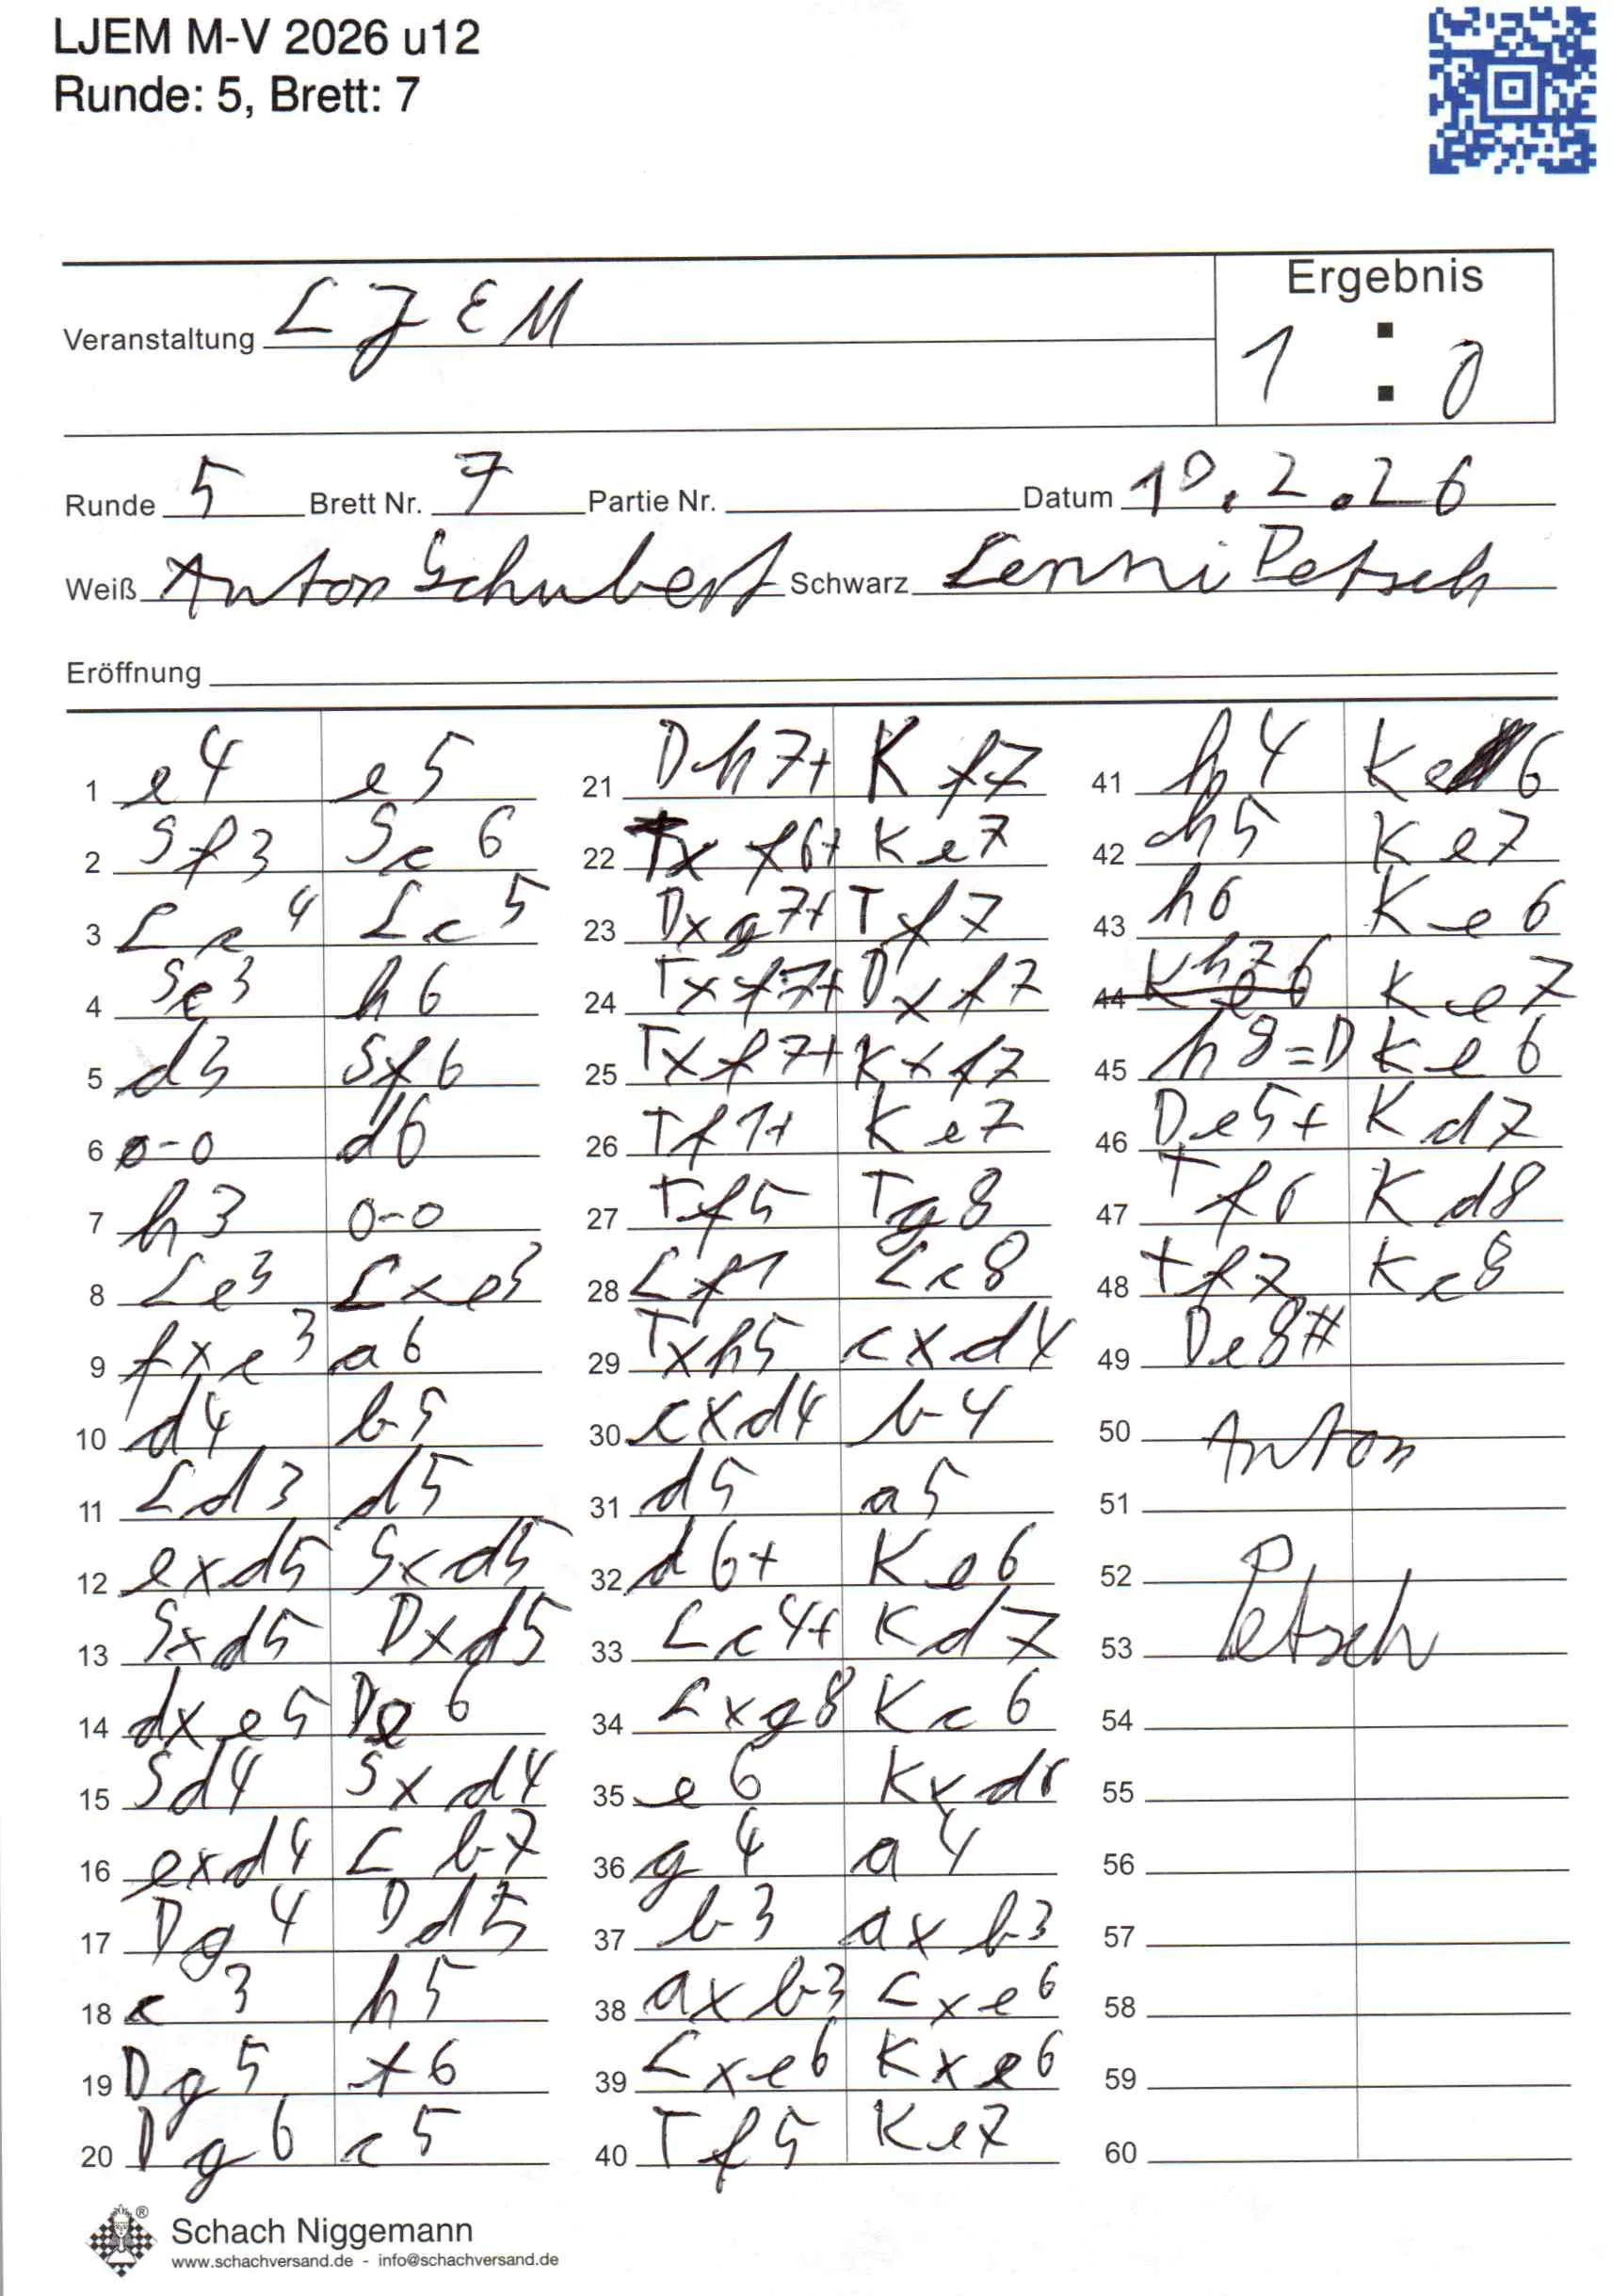 LJEM M-V 2026 u12
Runde: 5, Brett: 7
Veranstaltung LJEM
Ergebnis
1 : 0
Runde 5 Brett Nr. 7 Partie Nr. Datum 10.2.26
Weiß Anton Schubert Schwarz Lenni Petsch
Eröffnung
1 e4 e5
2 Sf3 Sc6
3 Lc4 Lc5
4 Sc3 h6
5 d3 Sf6
6 0-0 d6
7 h3 0-0
8 Le3 Lxe3
9 fxe3 a6
10 d4 b5
11 Ld3 d5
12 exd5 Sxd5
13 Sxd5 Dxd5
14 dxe5 De6
15 Sd4 Sxd4
16 exd4 Lb7
17 Dg4 Dd5
18 c3 h5
19 Dg5 f6
20 Dg6 c5
21 Dh7+ Kf7
22 Txf6+ Ke7
23 Dxg7+ Tf7
24 Txf7+ Dxf7
25 Txf7+ Kxf7
26 Tf1+ Ke7
27 Tf5 Tg8
28 Lf1 Lc8
29 Txh5 cxd4
30 cxd4 b4
31 d5 a5
32 d6+ Ke6
33 Lc4+ Kd7
34 Lxg8 Kc6
35 e6 Kxd6
36 g4 a4
37 b3 axb3
38 axb3 Lxe6
39 Lxe6 Kxe6
40 Tf5 Ke7
41 h4 Ke6
42 h5 Ke7
43 h6 Ke6
44 h7 Ke7
45 h8=D Ke6
46 De5+ Kd7
47 Tf6 Kd8
48 Tf7 Kc8
49 De8#
50 Anton
51
52
53 Petsch
54
55
56
57
58
59
60
Schach Niggemann
www.schachversand.de - info@schachversand.de